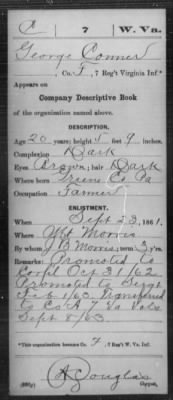 C 7 W. Va.
George Conner
, Co. F, 7 Reg't Virginia Inf.*
Appears on
Company Descriptive Book
of the organization named above.
DESCRIPTION.
Age 20 years; height 5 feet 9 inches.
Complexion Dark
Eyes Brown; hair Dark
Where born Green Co Pa
Occupation Farmer
ENLISTMENT.
When Sept 23, 1861.
Where Mt Morris
By whom J B Morris; term 3 y'rs.
Remarks: Promoted to
Corpl Oct 31/62
Promoted to Sergt
Feb 1/63. Transferred
to Co A 7 Va Vols
Sept 8/63
*This organization became Co. F, 7 Reg't W. Va. Inf.
A Douglas
Copyist.